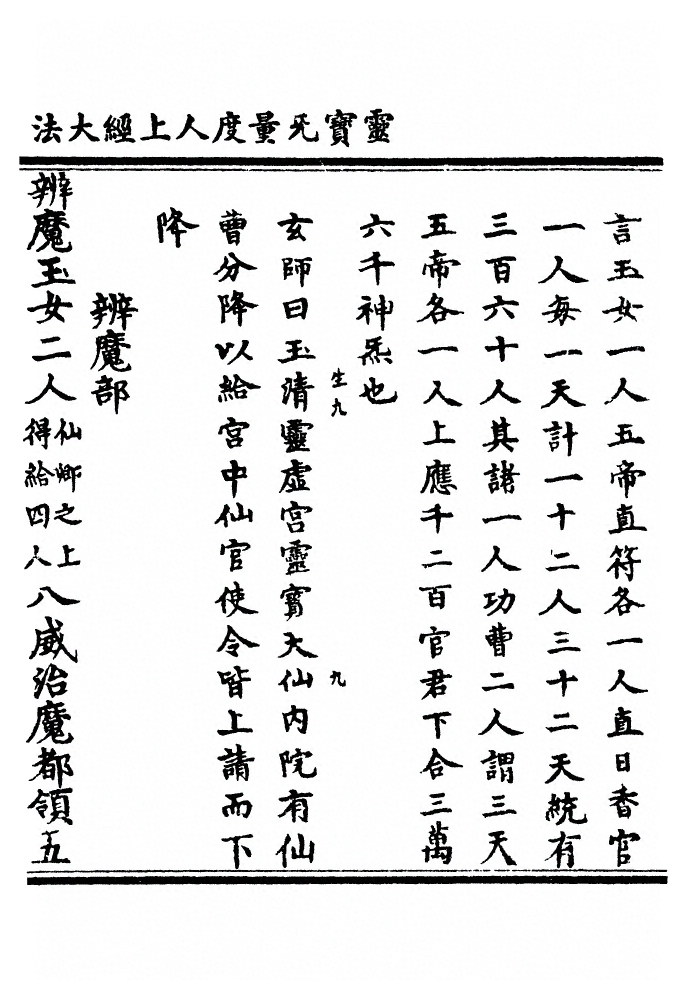 靈寶旡量度人上經大法
言玉女一人五帝直符各一人直日香官
一人每一天計一十二人三十二天統有
三百六十人其諸一人功曹二人謂三天
五帝各一人上應千二百官君下合三萬
六千神炁也
生九
九
玄師曰玉清靈虛宮靈寶大仙內院有仙
曹分降以給宮中仙官使令皆上請而下
降
辨魔部
辨魔玉女二人仙鄉之上得給四人八威治魔都領五